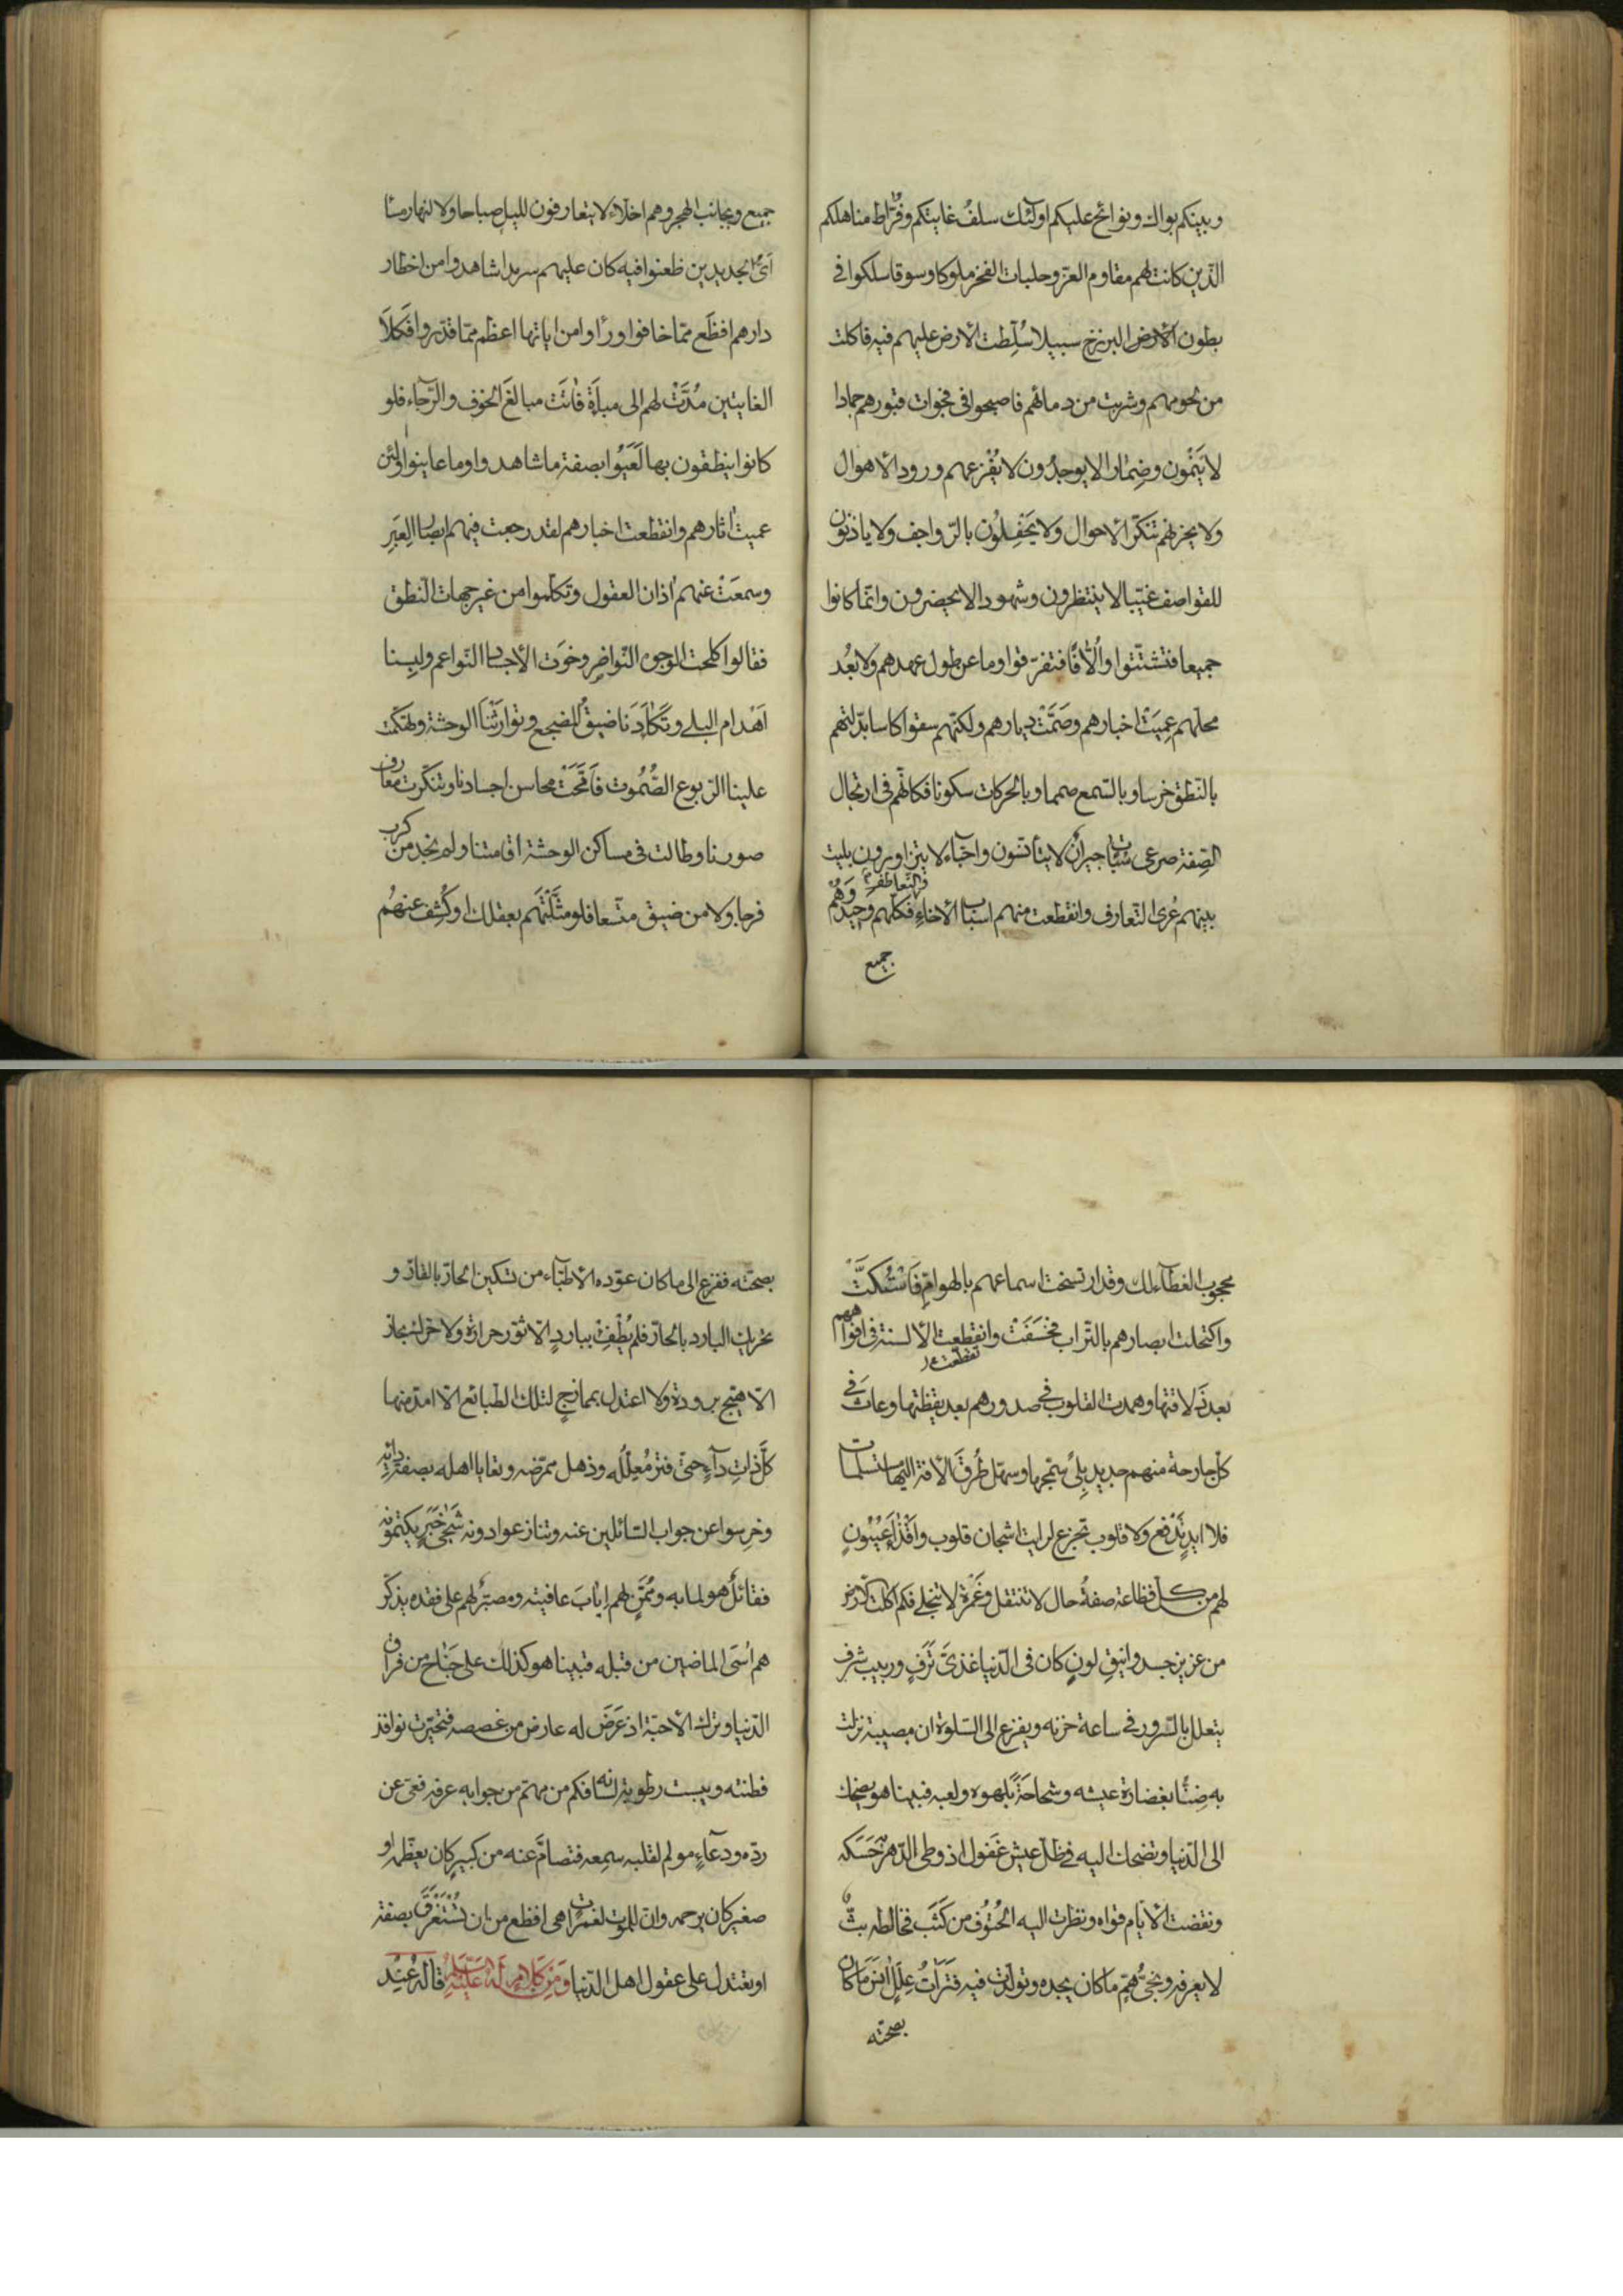 وبينكم بواك ونوائح عليكم اولئك سلف غايتكم وفُرّاط مناهلكم
الّذين كانت لهم مقاوم العزّ وحلبات الفخر ملوكا وسوقا سلكوا فى
بطون الأرض البرزخ سبيلا سُلِّطت الأرض عليهم فيه فاكلت
من لحومهم وشربت من دمائهم فاصبحوا فى فجوات قبورهم جمادا
لا يَنْمُون وضِمٰارا لا يوجدُون لا يُفْزِعهم ورود الأهوال
ولا يحزنهم تنكّر الأحوال ولا يَحْفِلُون بالرّواجف ولا ياذنون
للقواصف غيّبا لا ينتظرون وشهودا لا يحضرون وانّما كانوا
جميعا فتشتّتوا واُلّافًا فتفرّقوا وما عن طول عهدهم ولا بُعْد
محلّهم عمِيَتْ اخبارهم وصَمَّتْ ديارهم ولكنّهم سقوا كاسا بدّلتهم
بالنّطق خرسا وبالسّمع صمما وبالحركات سكونا فكانّهم فى ارتجال
الصِّفة صرعى سُبٰات جيرانٌ لا يتأنسون واحبّاء لا يتزاورون بليت
بينهم عُرى التّعارف وانقطعت منهم اسباب الأخاء فكلّهم وحيد وَهُمْ
جميع
جميع وبجانب الهجر وهم اخلّاء لا يتعارفون لليل صباحا ولا لنهار مساء
اَىُّ الجديدين ظعنوا فيه كان عليهم سرمدا شاهدوا من اخطار
دارهم افظَع ممّا خافوا وراوا من اياتها اعظم ممّا قدّروا فَكِلَا
الغايتين مُدَّتْ لهم الى مباءَة فٰاتَت مبالغَ الخوف والرّجاء فلو
كانوا ينطقون بها لَعَيُوا بصفة ما شاهدوا وما عاينوا ولئن
عميت اثارهم وانقطعت اخبارهم لقد رجعت فيهم ابصار العِبَرِ
وسمعَتْ عنهم اذان العقول وتكلّموا من غير جهات النّطق
فقالوا كلحت الوجوه النّواضِر وخوَت الأجساد النّواعم ولبِسنا
اَهْدٰام البلى وتَكٰاَدَنا ضيقُ المضجع وتوارَثْنَا الوحشة وتهكّمت
علينا الرّبوع الصُّمُوت فَامَّحَتْ محاسن اجسادنا وتنكّرت معارف
صورنا وطالت فى مساكن الوحشة اقامتنا ولم نجد من كرب
فرجا ولا من ضيق متّسعا فلو مثّلْتَهم بعقلك او كُشِف عنهُم
محجوب الغطآء لك وقد ارتسخت اسماعهم بالهوامّ فَاسْتَكَّتْ
واكتحلت ابصارهم بالتّراب فخسَفَتْ وانقطعت الألسنة فى افواههم
تقطّعت
بعد ذَلاقتها وهمدت القلوب فى صدورهم بعد يقظتها وعاث فى
كلّ جارحة منهم جديد بِلىً سمّجها وسهّل طُرقَ الأفة اليها مستسلمات
فلا ايدٍ تَدْفع ولا قلوب تجزع لرايت اشجان قلوب واَقْذاءَ عُيُونٍ
لهم من كلّ فظاعة صفةُ حال لا تنتقل وغَمْرة لا تنجلى فكم اكلت الأرض
من عزيز جسد وانيقِ لونٍ كان فى الدّنيا غذىَّ تَرَفٍ وربيب شرف
يتعلل بالسّرور فى ساعة حزنه ويفزع الى السّلوة ان مصيبة نزلت
به ضِنًّا بغضارة عيشه وشحاحَةً بلهوه ولعبه فبينا هو يضحك
الى الدّنيا وتضحك اليه فى ظلّ عيش غَفول اذ وطئ الدّهر به حَسَكه
ونقضت الأيّام قواه ونظرت اليه الحُتوُف من كَثَب فخالطه بثّ
لا يعرفه ونجىُّ همٍّ ما كان يجده وتولّدت فيه فَتَراتُ عِلَلٍ اٰنَسَ مٰا كان
بصحّته
بصحّته ففزع الى ما كان عوّده الأطبّاء من تسكين الحارّ بالقارّ و
تحريك البارد بالحارّ فلم يُطْفِئ بباردٍ الّا ثوّر حرارة ولا حرّك بحارّ
الّا هيّج برودة ولا اعتدل بممازجٍ لتلك الطبائع الّا امدّ منها
كلَّ ذٰاتِ دآءٍ حتّى فتر مُعلِّلُه وذهل ممرّضه وتعايا اهله بصفة دائه
وخرِسوا عن جواب السّائلين عنه وتنازعوا دونه شَجِىَّ خَبَرٍ يكتمونه
فقائلٌ هو لما به ومُمَنٍّ لهم اِيٰابَ عافيته ومصبّر لهم على فقده يذكّر
هم اُسَى الماضين من قبله فبينا هو كذلك على جَنٰاح من فراق
الدّنيا وترك الأحبّة اذ عَرَضَ له عارض من غصصه فتحيّرت نوافذ
فطنته ويبست رطوبة لسانه فكم من مهمّ من جوابه عرفه فعىّ عن
ردّه ودعآءٍ مولم لقلبه سمعه فتصامّ عنه من كبير كان يعظّمه او
صغير كان يرحمه وانّ للموت لغمرات هى افظع من ان تُسْتَغْرَقَ بصفة
او تعتدل على عقول اهل الدّنيا وَمِنْ كَلَامٍ لَهُ عَلَيْهِ السَّلٰم قاله عِنْد